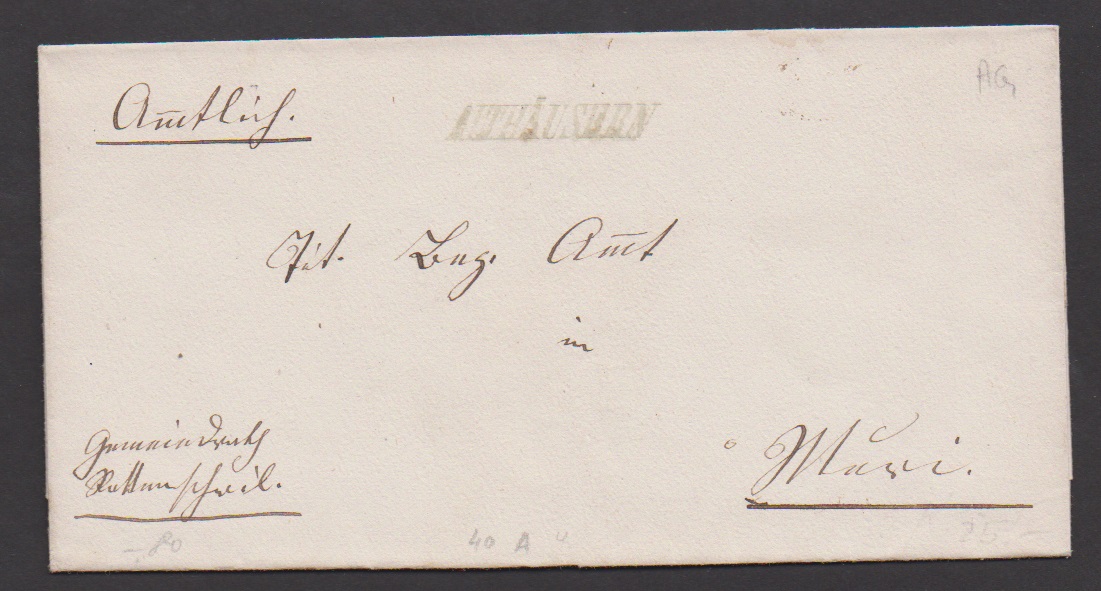 Am̄tlich.
ALTHÄUSERN
AG
Tit. Bez. Am̄t
in
Muri.
Gemeindrath
Rottenschwil.
40 A